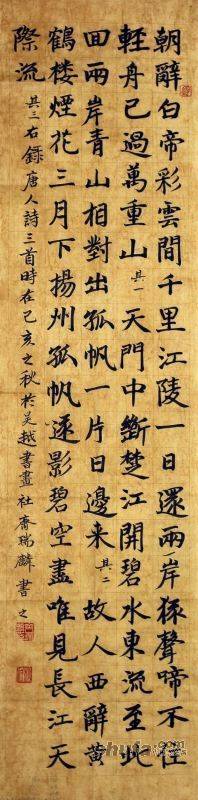 朝辭白帝彩雲間千里江陵一日還兩岸猿聲啼不住
輕舟已過萬重山其一天門中斷楚江開碧水東流至此
回兩岸青山相對出孤帆一片日邊來其二故人西辭黃
鶴樓煙花三月下揚州孤帆遠影碧空盡唯見長江天
際流
其三右錄唐人詩三首時在己亥之秋於吳越書畫社齊瑞麟書之